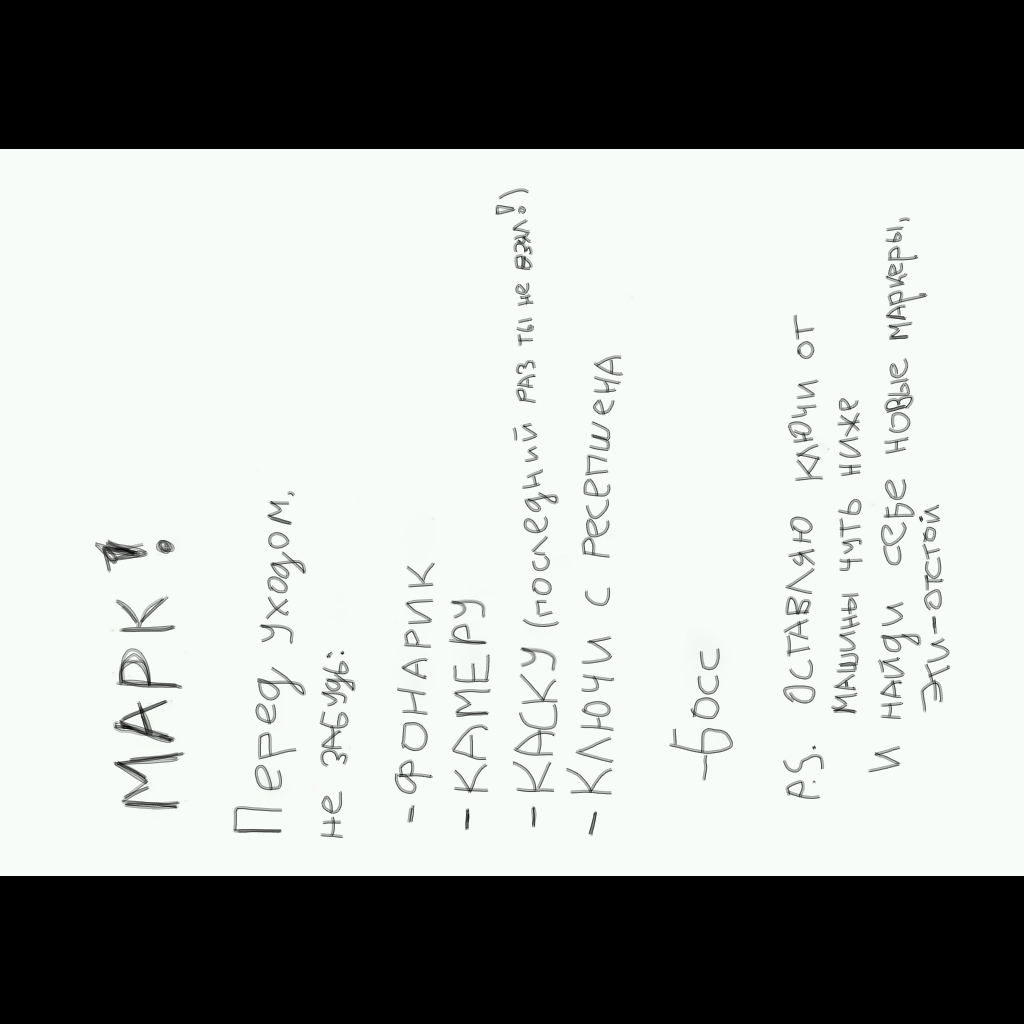 МАРК!
Перед уходом,
не забудь:
- ФОНАРИК
- КАМЕРУ
- КАСКУ (последний раз ты не взял!)
- КЛЮЧИ С РЕСЕПШЕНА
- Босс
P.S. ОСТАВЛЯЮ КЛЮЧИ ОТ
МАШИНЫ ЧУТЬ НИЖЕ
И НАЙДИ СЕБЕ НОВЫЕ МАРКЕРЫ,
ЭТИ - ОТСТОЙ